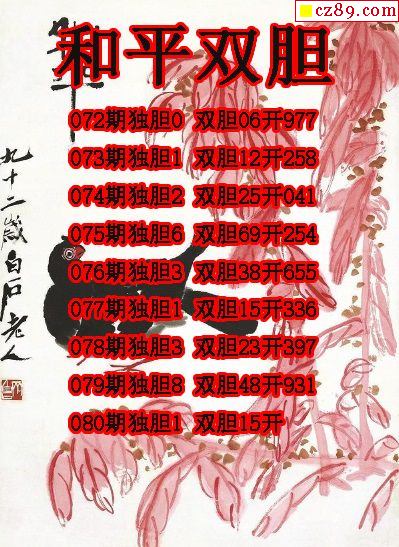 cz89.com
和平双胆
072期独胆0 双胆06开977
073期独胆1 双胆12开258
074期独胆2 双胆25开041
075期独胆6 双胆69开254
076期独胆3 双胆38开655
077期独胆1 双胆15开336
078期独胆3 双胆23开397
079期独胆8 双胆48开931
080期独胆1 双胆15开
九十二歲白石老人